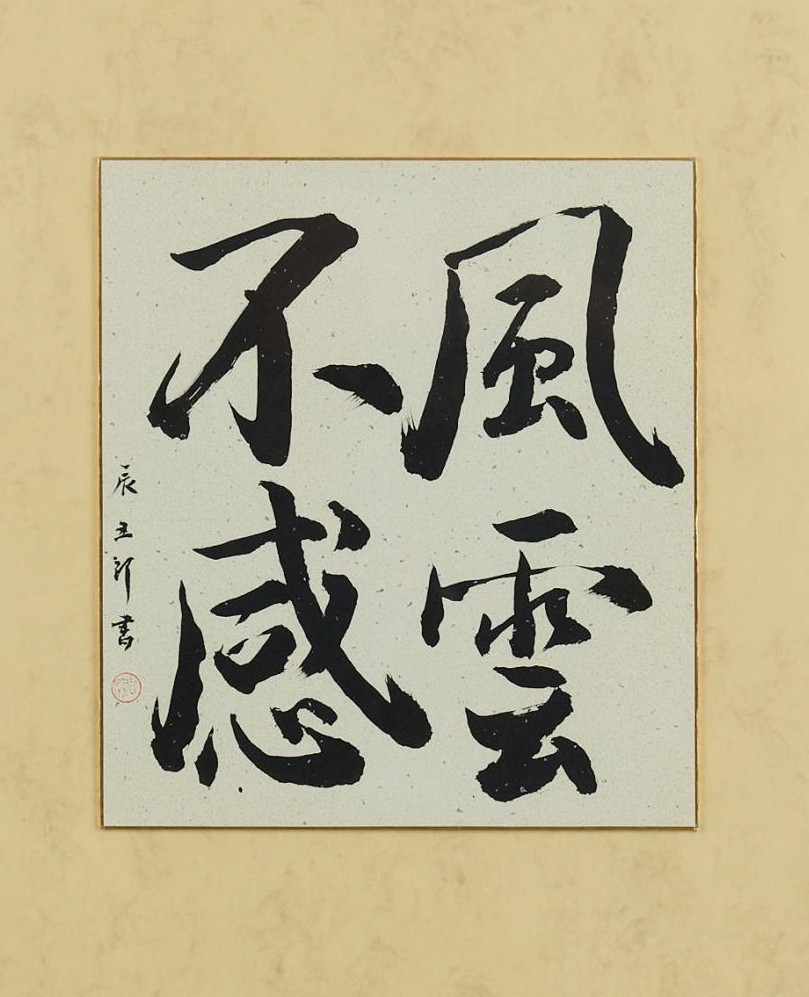 風雲
不感
辰五郎書